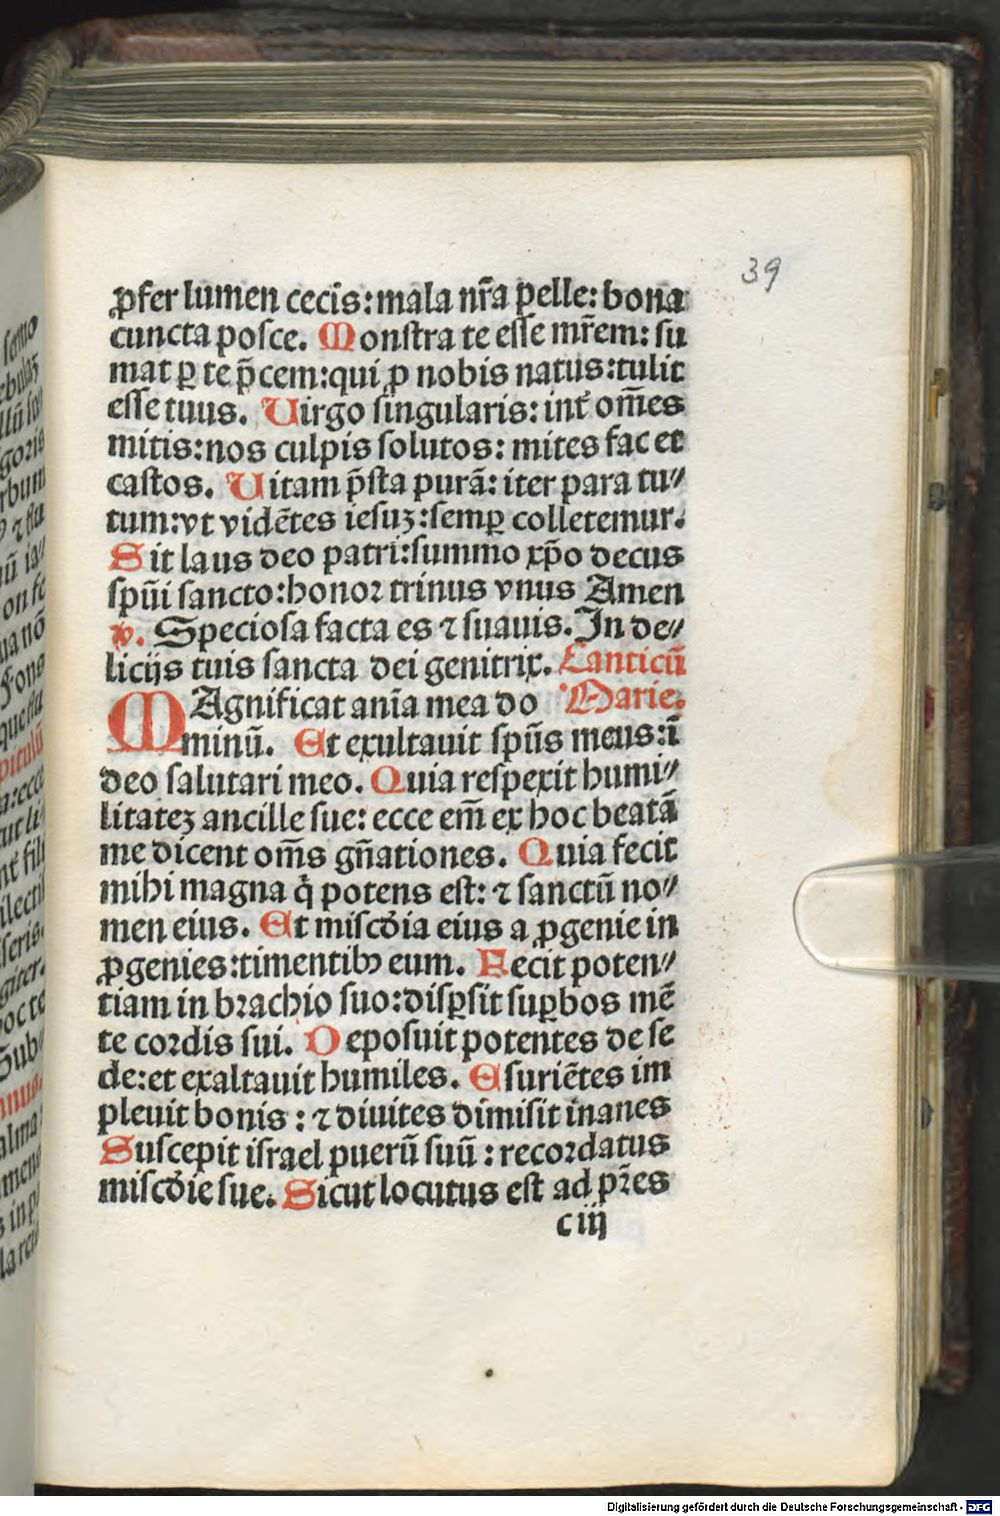 39
ꝓfer lumen cecis: mala nr̃a pelle: bona
cuncta posce. Monstra te esse mr̃em: su
mat ꝑ te p̃cem: qui ꝓ nobis natus: tulit
esse tuus. Uirgo singularis: int̃ om̃es
mitis: nos culpis solutos: mites fac et
castos. Uitam p̃sta purã: iter para tu⸗
tum: vt vidẽtes iesuʒ: semꝑ colletemur.
Sit laus deo patri: summo xp̃o decus
spũi sancto: honor trinus vnus Amen
v. Speciosa facta es ⁊ suauis. In de⸗
licijs tuis sancta dei genitrix. Canticũ
MAgnificat anĩa mea do Marie.
minũ. Et exultauit spũs meus: ĩ
deo salutari meo. Quia respexit humi⸗
litateʒ ancille sue: ecce em̃ ex hoc beatã
me dicent om̃s gñationes. Quia fecit
mihi magna q̇ potens est: ⁊ sanctũ no⸗
men eius. Et miscd̃ia eius a ꝓgenie in
ꝓgenies: timentibꝰ eum. Fecit poten⸗
tiam in brachio suo: disꝑsit suꝑbos mẽ
te cordis sui. Deposuit potentes de se
de: et exaltauit humiles. Esuriẽtes im
pleuit bonis: ⁊ diuites dimisit inanes
Suscepit israel puerũ suũ: recordatus
miscd̃ie sue. Sicut locutus est ad pr̃es
c iij
semo
ebulaʒ
goris
rbum
⁊ flu
ia⸗
on fe
na nõ
Fons
que flu
pitulũ
a: ecce
cut li⸗
nt̃ fili
ilecti
seris.
giter.
oc te
Sub⸗
nus.
alma:
mens
s in p
Digitalisierung gefördert durch die Deutsche Forschungsgemeinschaft - DFG